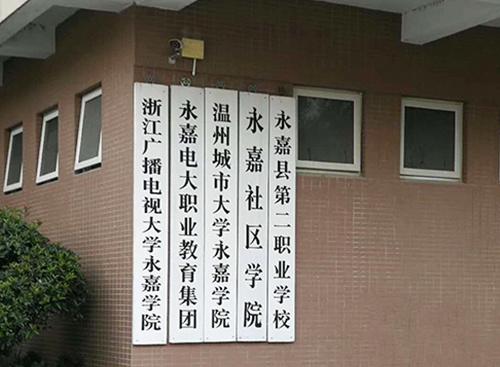 浙江广播电视大学永嘉学院
永嘉电大职业教育集团
温州城市大学永嘉学院
永嘉社区学院
永嘉县第二职业学校